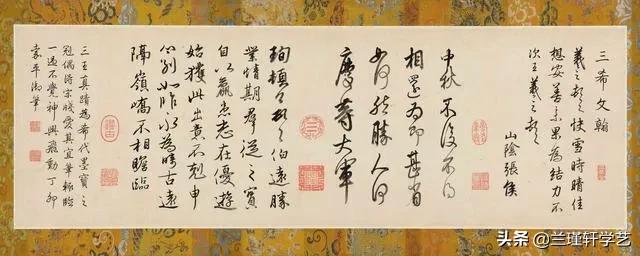 三希文翰
羲之頓首快雪時晴佳
想安善未果為結力不
次王羲之頓首
山陰張侯
中秋不復不得
相還為即甚省
如何然勝人何
慶等大軍
珣頓首頓首伯遠勝
業情期羣從之寶
自以羸患志在優遊
始獲此出意不剋申
分別如昨永為疇古遠
隔嶺嶠不相瞻臨
三王真蹟為希代墨寶之
冠偶得宋牋愛其宜筆輒臨
一過不覺神興飛動丁卯
嘉平御筆
头条 @兰瑾轩学艺